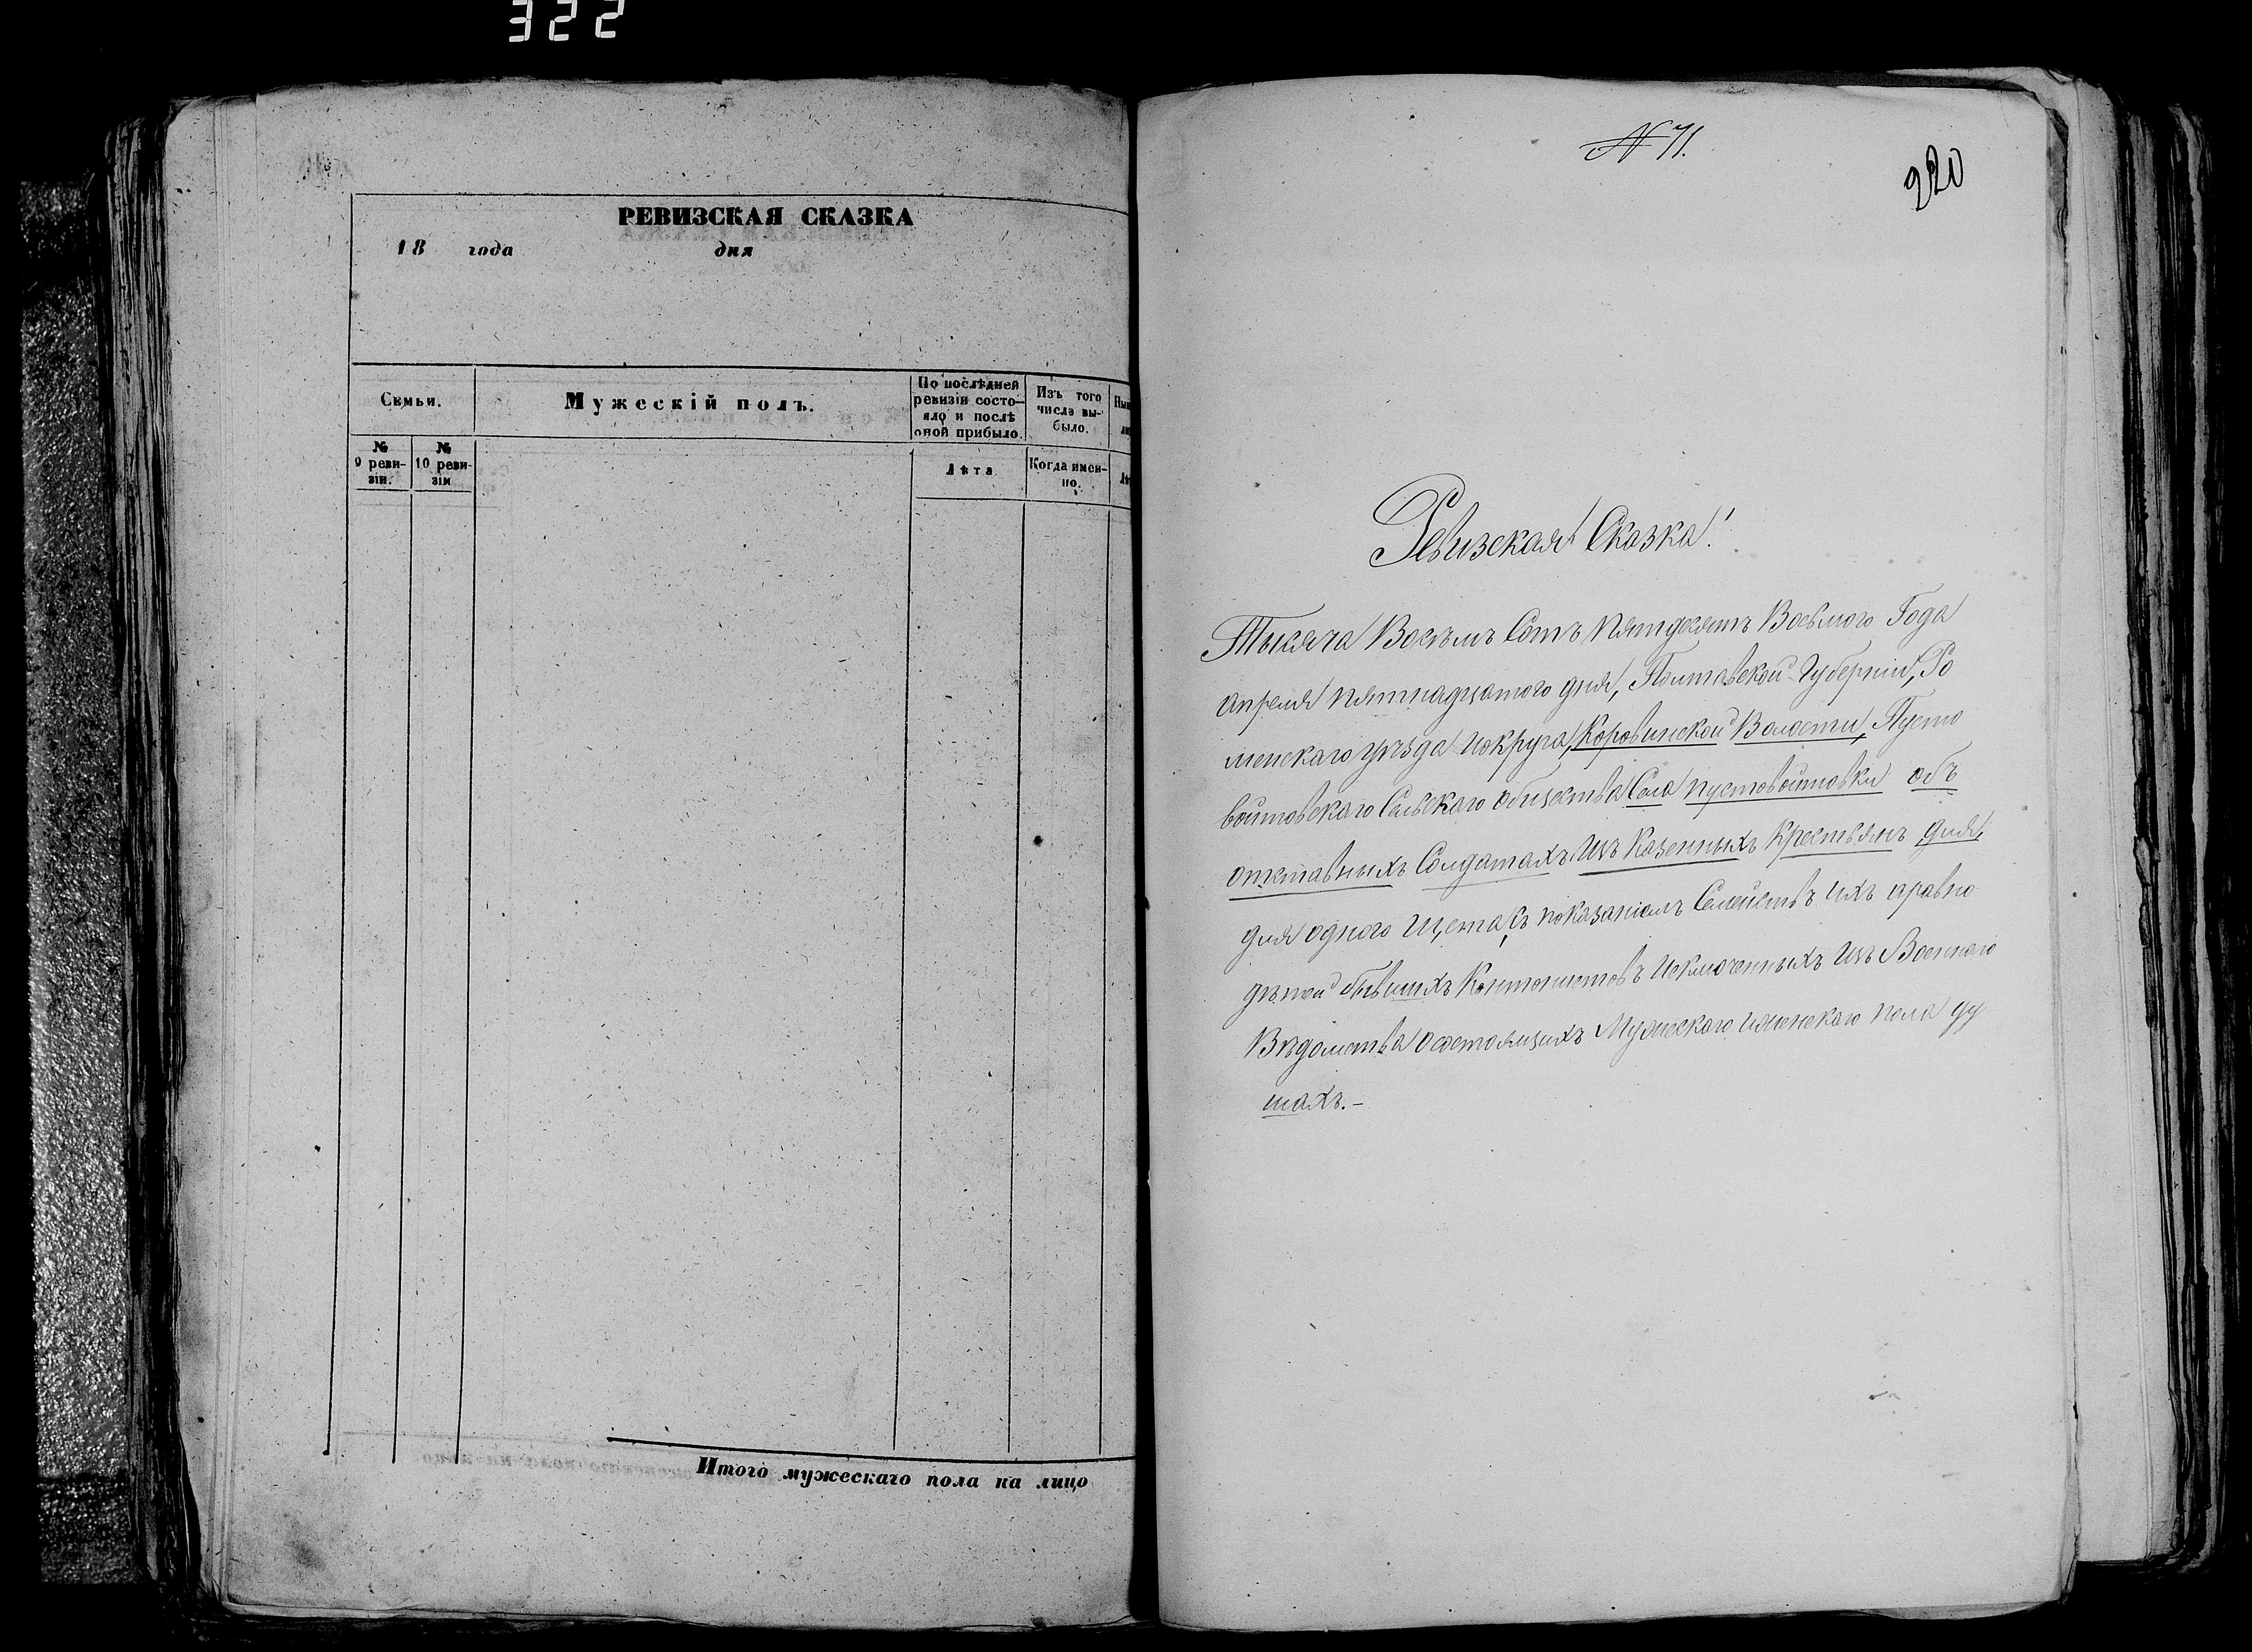 322
РЕВИЗСКАЯ СКАЗКА
18 года дня
Семьи.
Мужескій полъ.
По послѣдней
ревизіи состо-
яло и послѣ
оной прибыло.
Изъ того
числа вы-
было.
№
9 реви-
зіи.
№
10 реви-
зіи
Лѣта
Когда имен-
но.
Итого мужескаго пола на лицо
№ 71.
220
Ревизская Сказка!
Тысяча Восѣмъ Сотъ пятдесятъ Восьмого Года
апреля пятнадцатого дня, Полтавской Губерніи, Ро
менскаго уѣзда иокруга, Коровинской Волости, Пусто
войтовскаго Сельскаго общества Села пустовойтовки объ
отставныхъ Солдатахъ Изъ Казенныхъ Крестьянъ для,
для одного Щета, съ показаніемъ Семействъ ихъ иравно
дѣтей бывшихъ Кантонистовъ Исключенныхъ Изъ Военнаго
Вѣдомства осостоящихъ Мужескаго иженскаго пола ду
шахъ.-